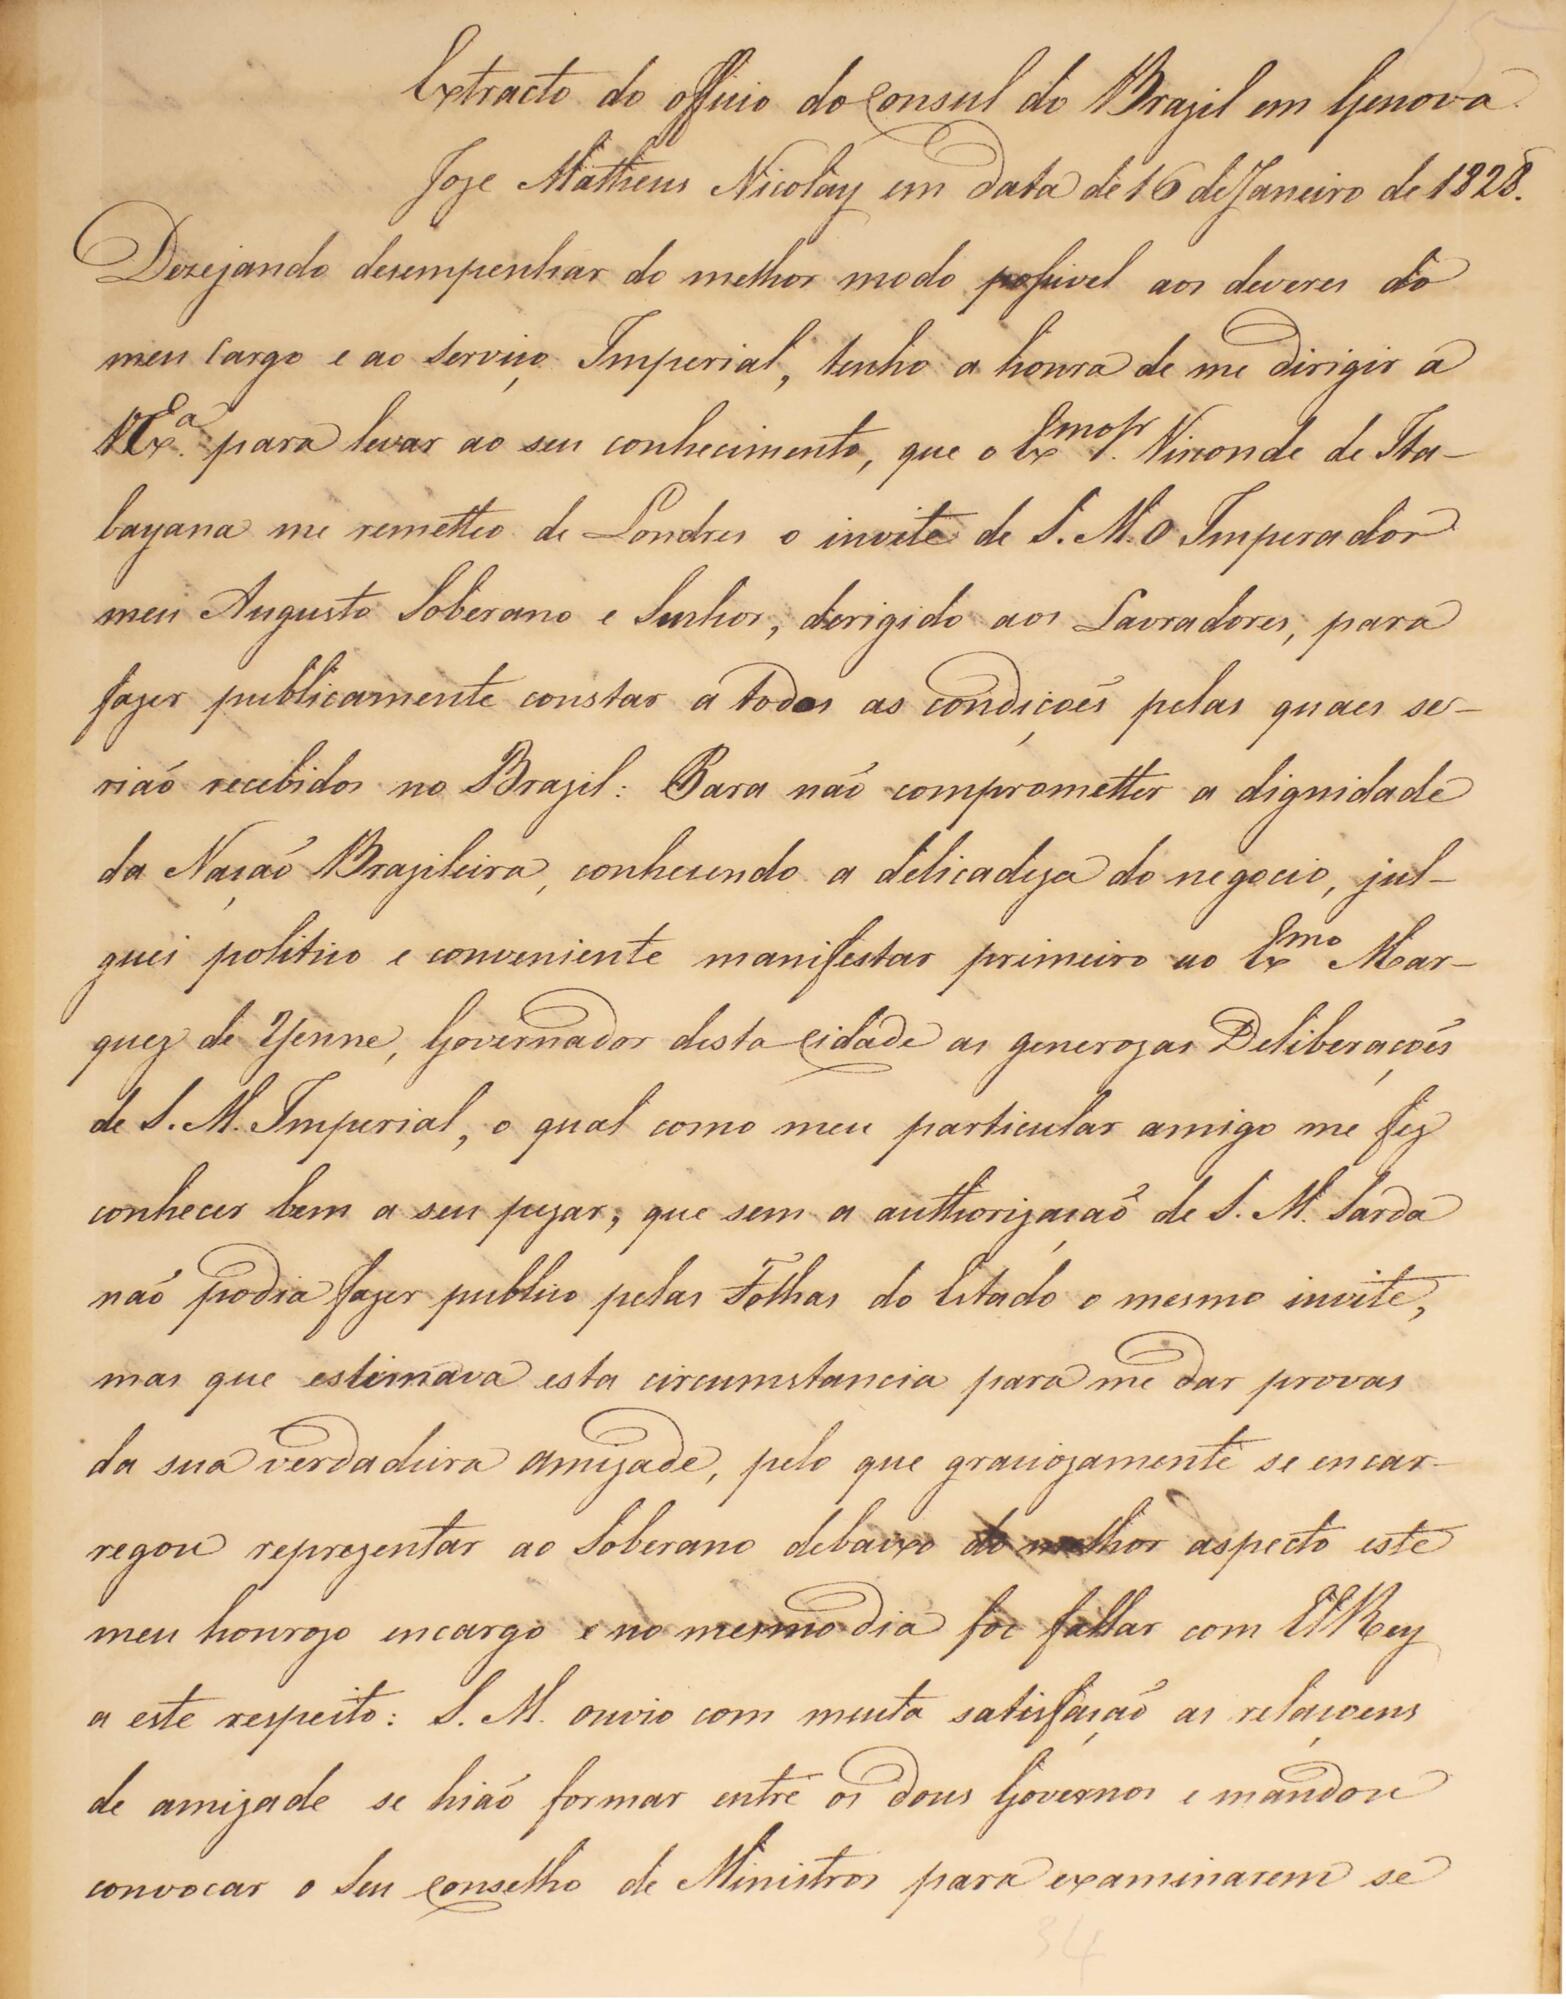 Extracto do officio do Consul do Brazil em Genova
Joze Matheus Nicolay em data de 16 de Janeiro de 1828.
Dezejando desempenhar do melhor modo possivel aos deveres do
meu Cargo e ao Serviço Imperial, tenho a honra de me dirigir a
V.Ex.ª para levar ao seu conhecimento, que o Exmo Sr. Visconde de Ita-
bayana me remetteo de Londres o invite de S. M. O Imperador
meu Augusto Soberano e Senhor, derigido aos Lavradores, para
fazer publicamente constar a todos as condiçoẽs pelas quaes se-
riaõ recebidos no Brazil: Para naõ comprometter a dignidade
da Naçaõ Brazileira, conhecendo a delicadeza do negocio, jul-
guei politico e conveniente manifestar primeiro ao Exmo Mar-
quez de Yenne, Governador desta Cidade as generozas Deliberaçoẽs
de S. M. Imperial, o qual como meu particular amigo me fez
conhecer bem a seu pezar, que sem a authorizaçaõ de S. M. Sarda
naõ podia fazer publico pelas Folhas do Estado o mesmo invite,
mas que estimava esta circumstancia para me dar provas
da sua verdadeira amizade, pelo que graciozamente se encar-
regou reprezentar ao Soberano debaixo do melhor aspecto este
meu honrozo encargo e no mesmo dia foi fallar com El Rey
a este respeito: S. M. ouvio com muita satisfaçaõ as relaçoens
de amizade se hiaõ formar entre os dous Governos e mandou
convocar o Seu Conselho de Ministros para examinarem se
34